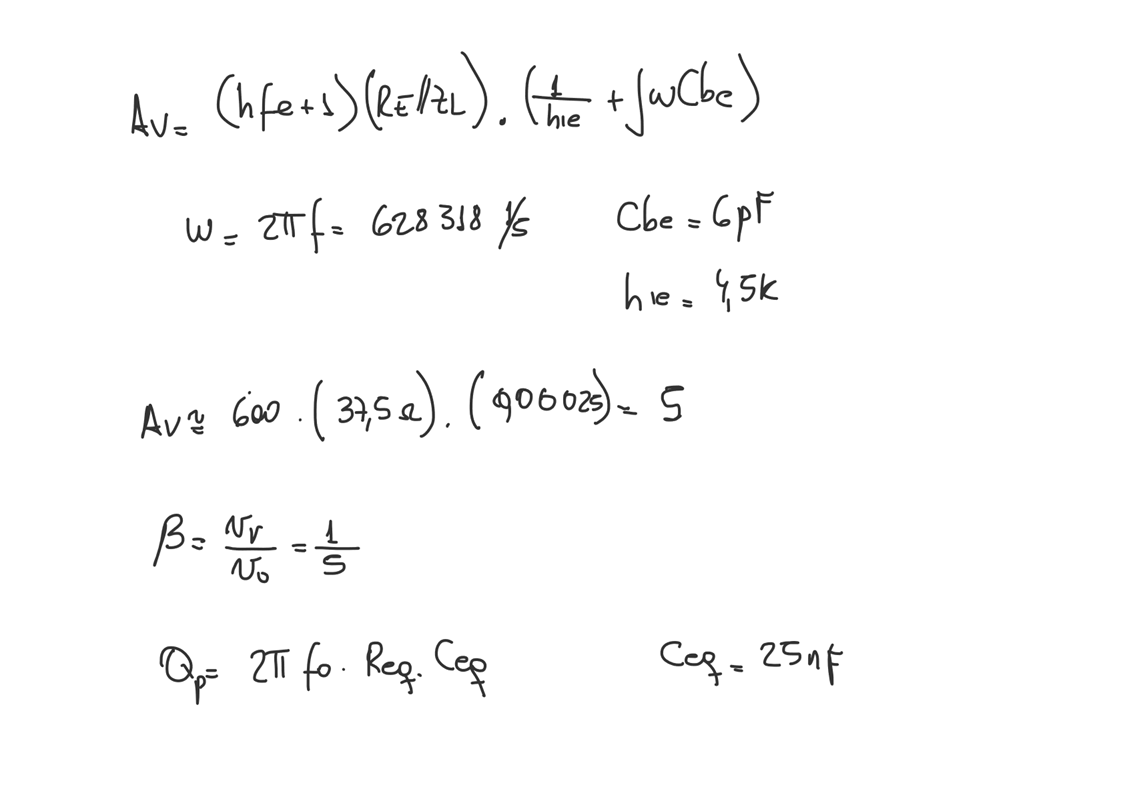 Av= (hfe+1)(RE//ZL). (1/hie + jwCbe)
w= 2πf= 628318 1/s Cbe = 6pF
hie = 4,5k
Av≈ 600 . (37,5Ω). (0,00025)= 5
β= Vr/Vo = 1/5
Qp= 2π fo. Req. Ceq Ceq = 25nF